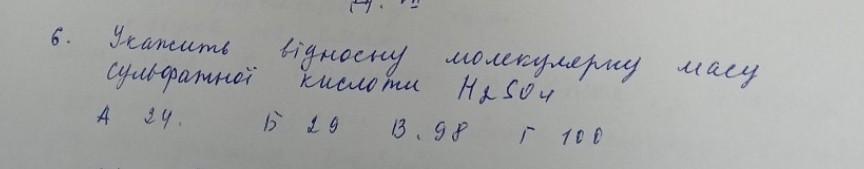 6. Укажить відносну молекулярну масу
сульфатної кислоти H2SO4
А 24. Б 29 В. 98 Г 100